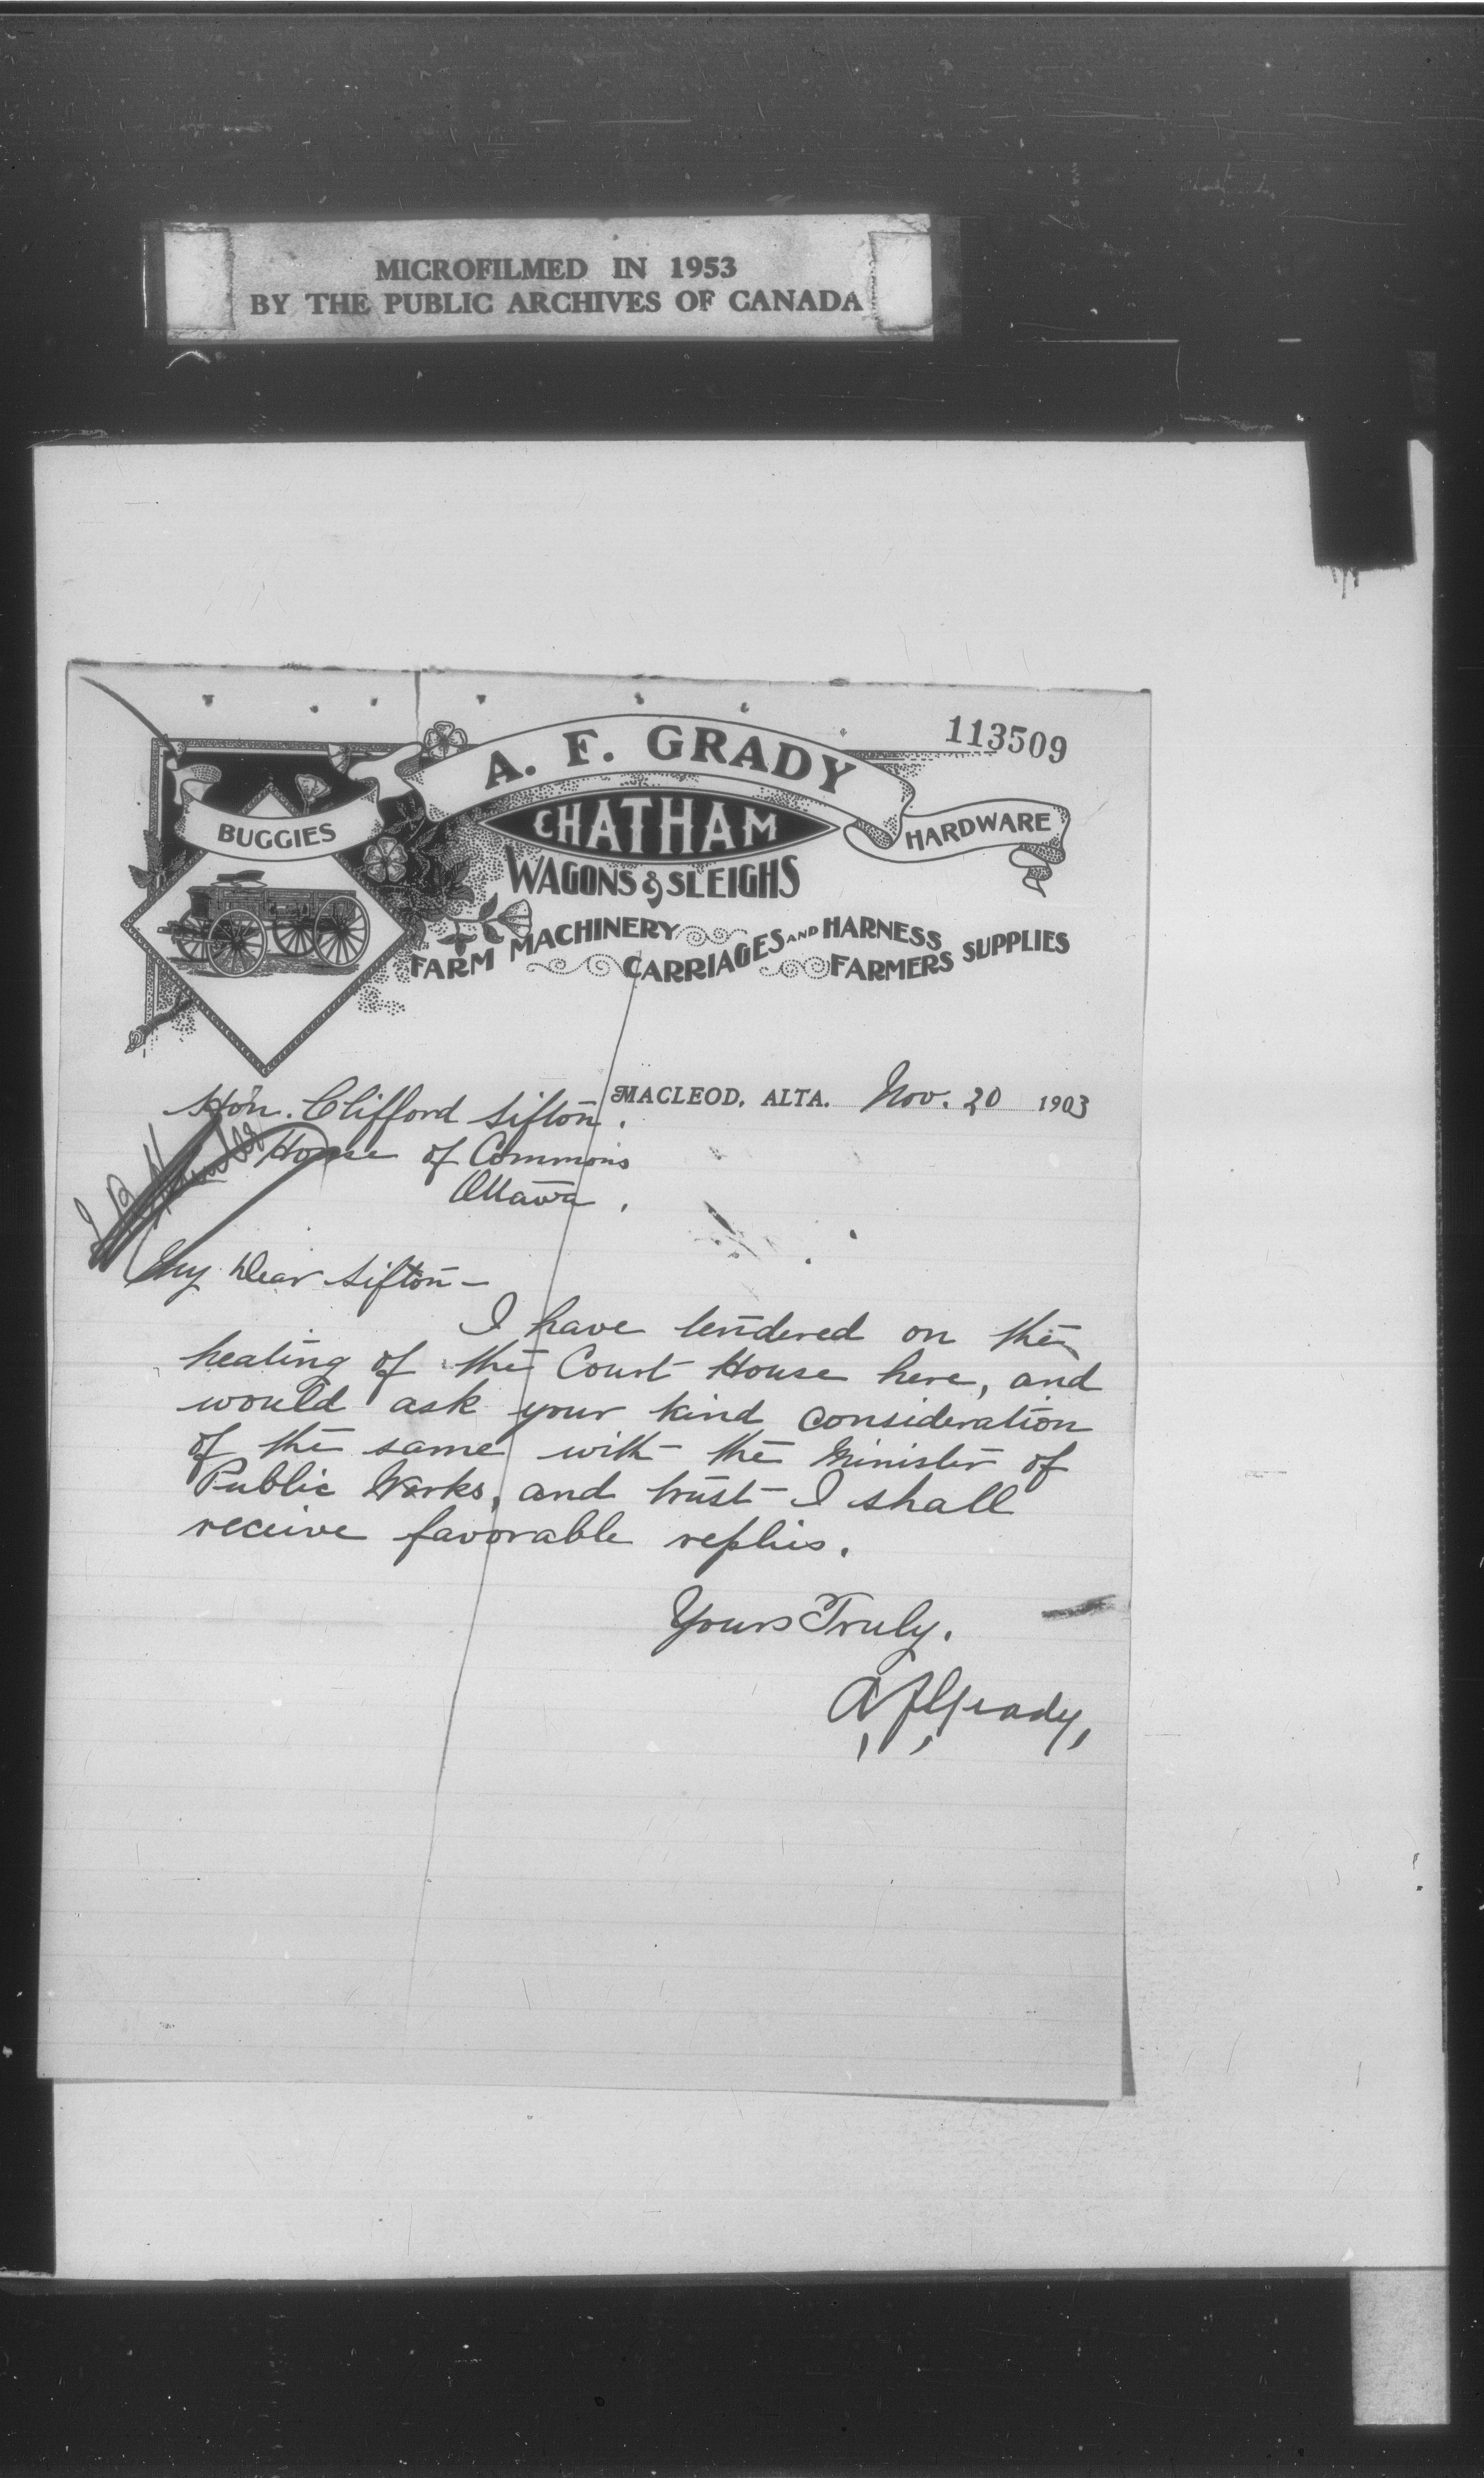 MICROFILMED IN 1953
BY THE PUBLIC ARCHIVES OF CANADA
113509
A. F. GRADY
BUGGIES
CHATHAM
HARDWARE
WAGONS & SLEIGHS
FARM MACHINERY CARRIAGES AND HARNESS FARMERS SUPPLIES
MACLEOD, ALTA. Nov. 20 1903
Hon. Clifford Sifton.
House of Commons
Ottawa.
My Dear Sifton-
I have tendered on the
heating of the Court House here, and
would ask your kind consideration
of the same with the Minister of
Public Works, and trust I shall
receive favorable replies.
Yours Truly.
A. F. Grady,